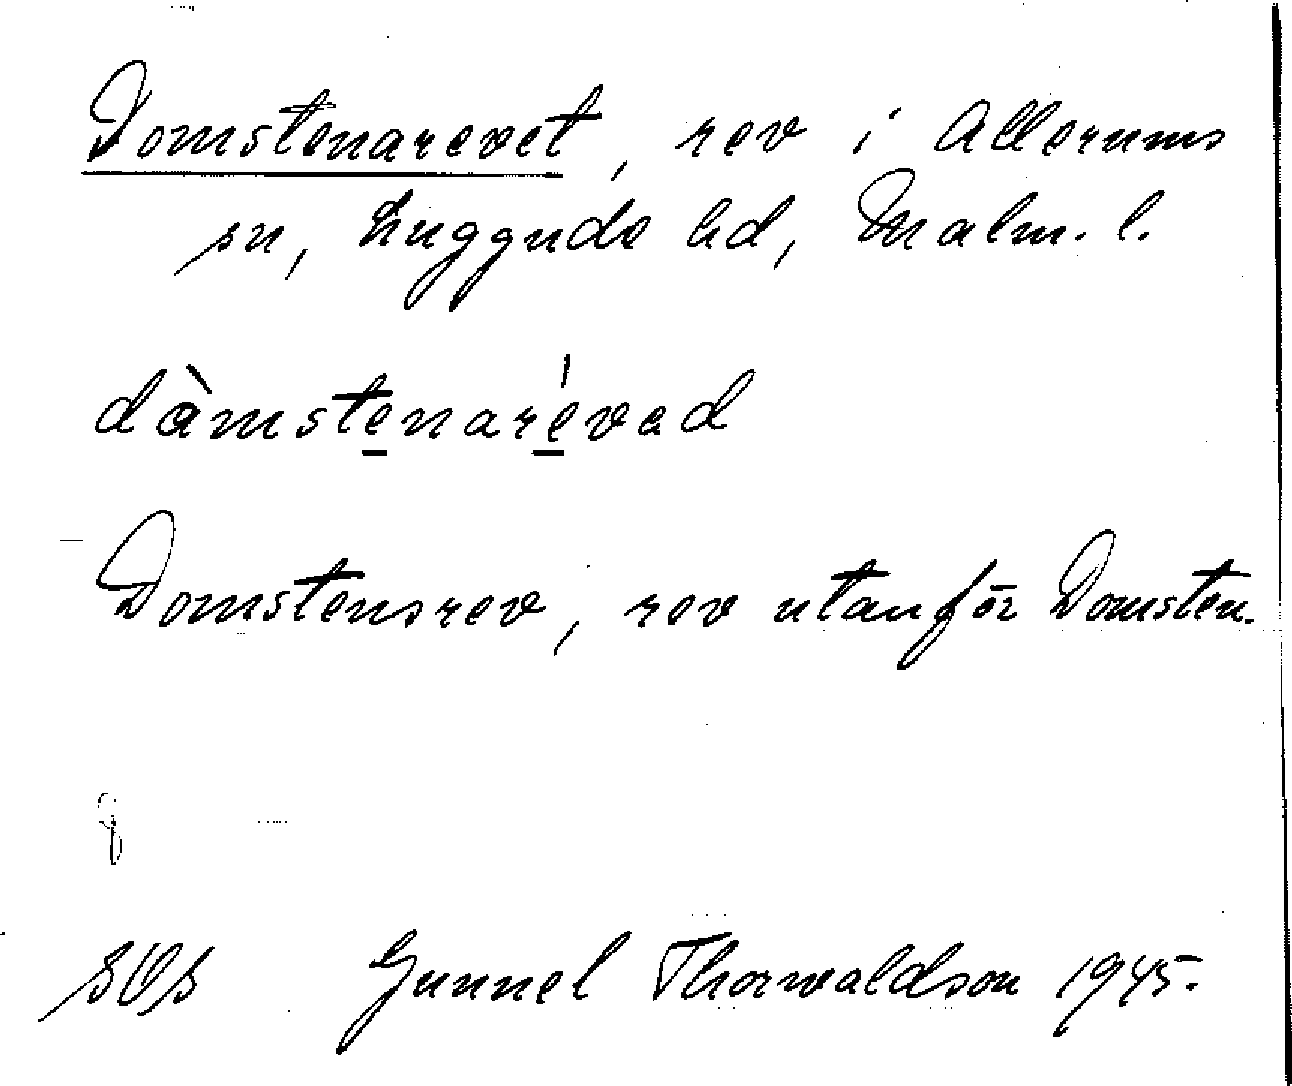 Domstenarevet, rev i Allerums
sn, Luggude hd, Malm. l.
dàmstenarévad
Domstensrev, rev utanför Domsten.
Gunnel Thorwaldson 1945.